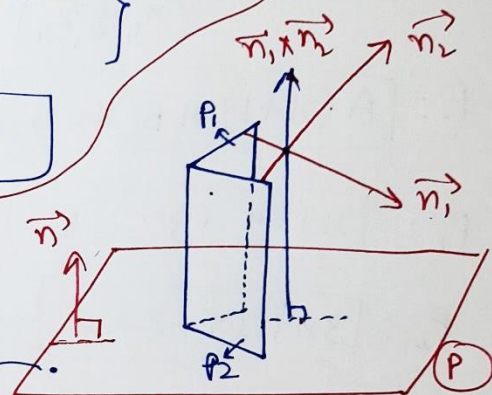 $\vec{n_1} \times \vec{n_2}$
$\vec{n_2}$
P1
$\vec{n_1}$
$\vec{n}$
P2
P